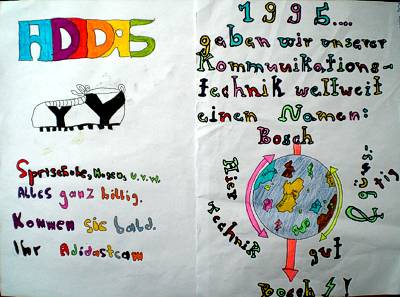 ADIDAS
u.v.w.
Alles ganz billig.
Kommen sie bald.
Ihr Adidasteam
1995....
geben wir unserer
Kommunikations-
technik weltweit
einen Namen:
Bosch
Hier
Technik
gut
Güns-
tig
Bosch